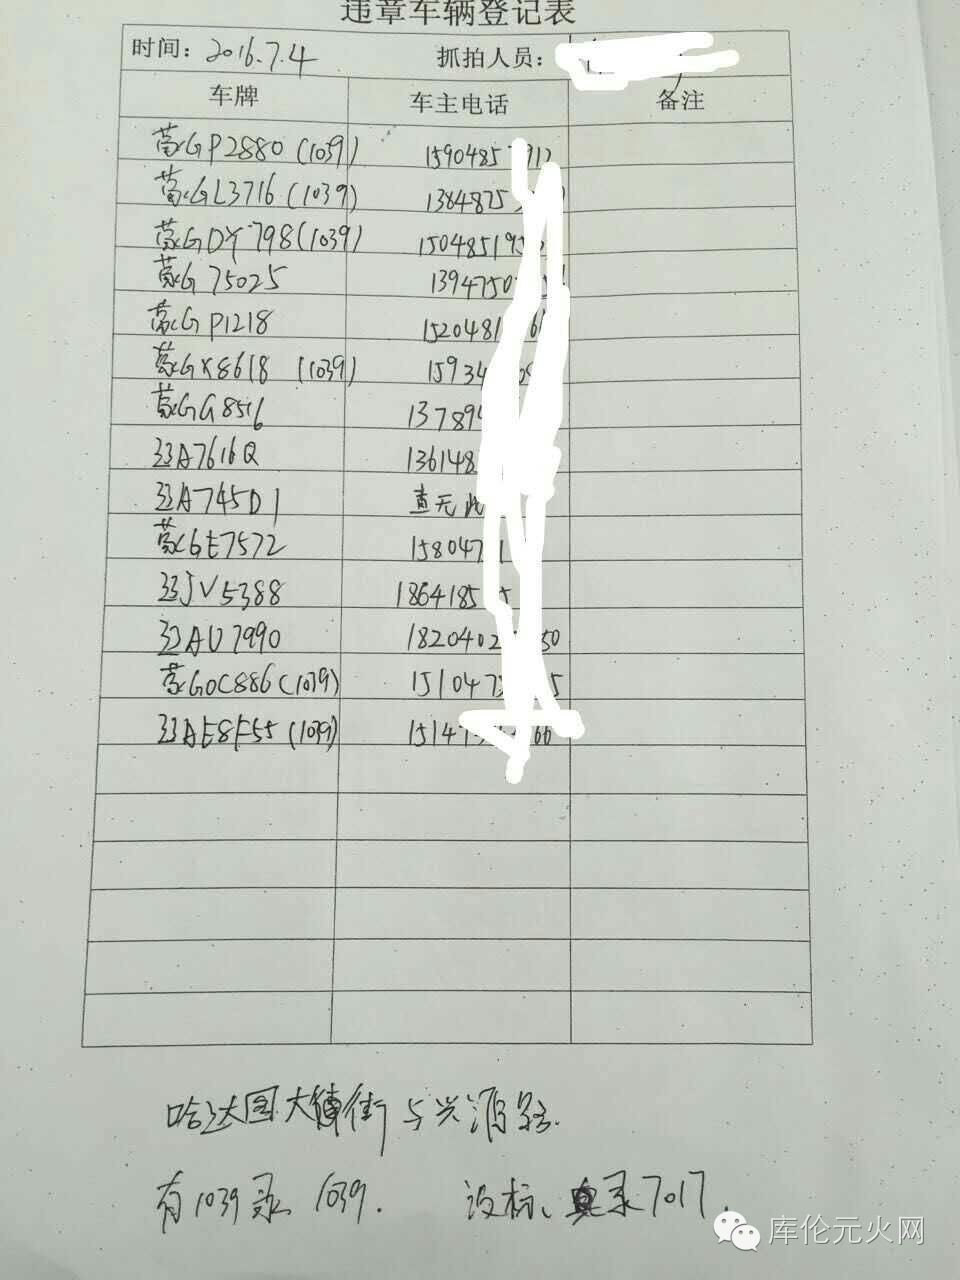 违章车辆登记表
时间：2016.7.4 抓拍人员：
车牌 车主电话 备注
蒙GP2880(1039) 1590485 912
蒙GL3716(1039) 13848753
蒙GDY798(1039) 150485195
蒙G 75025 13947507
蒙GP1218 1520481 6
蒙GX8618 (1039) 15934
蒙GG8516 137894
辽A7616Q 136148
辽A745D1 查无此
蒙GE7572 158047 1
辽JV5388 1864185 5
辽AU7990 1820402 50
蒙G0C886(1039) 151047 5
辽AE8F55(1039) 15147 66
哈达图大街与兴源路.
有1039录1039. 没标、录7017.
库伦元火网